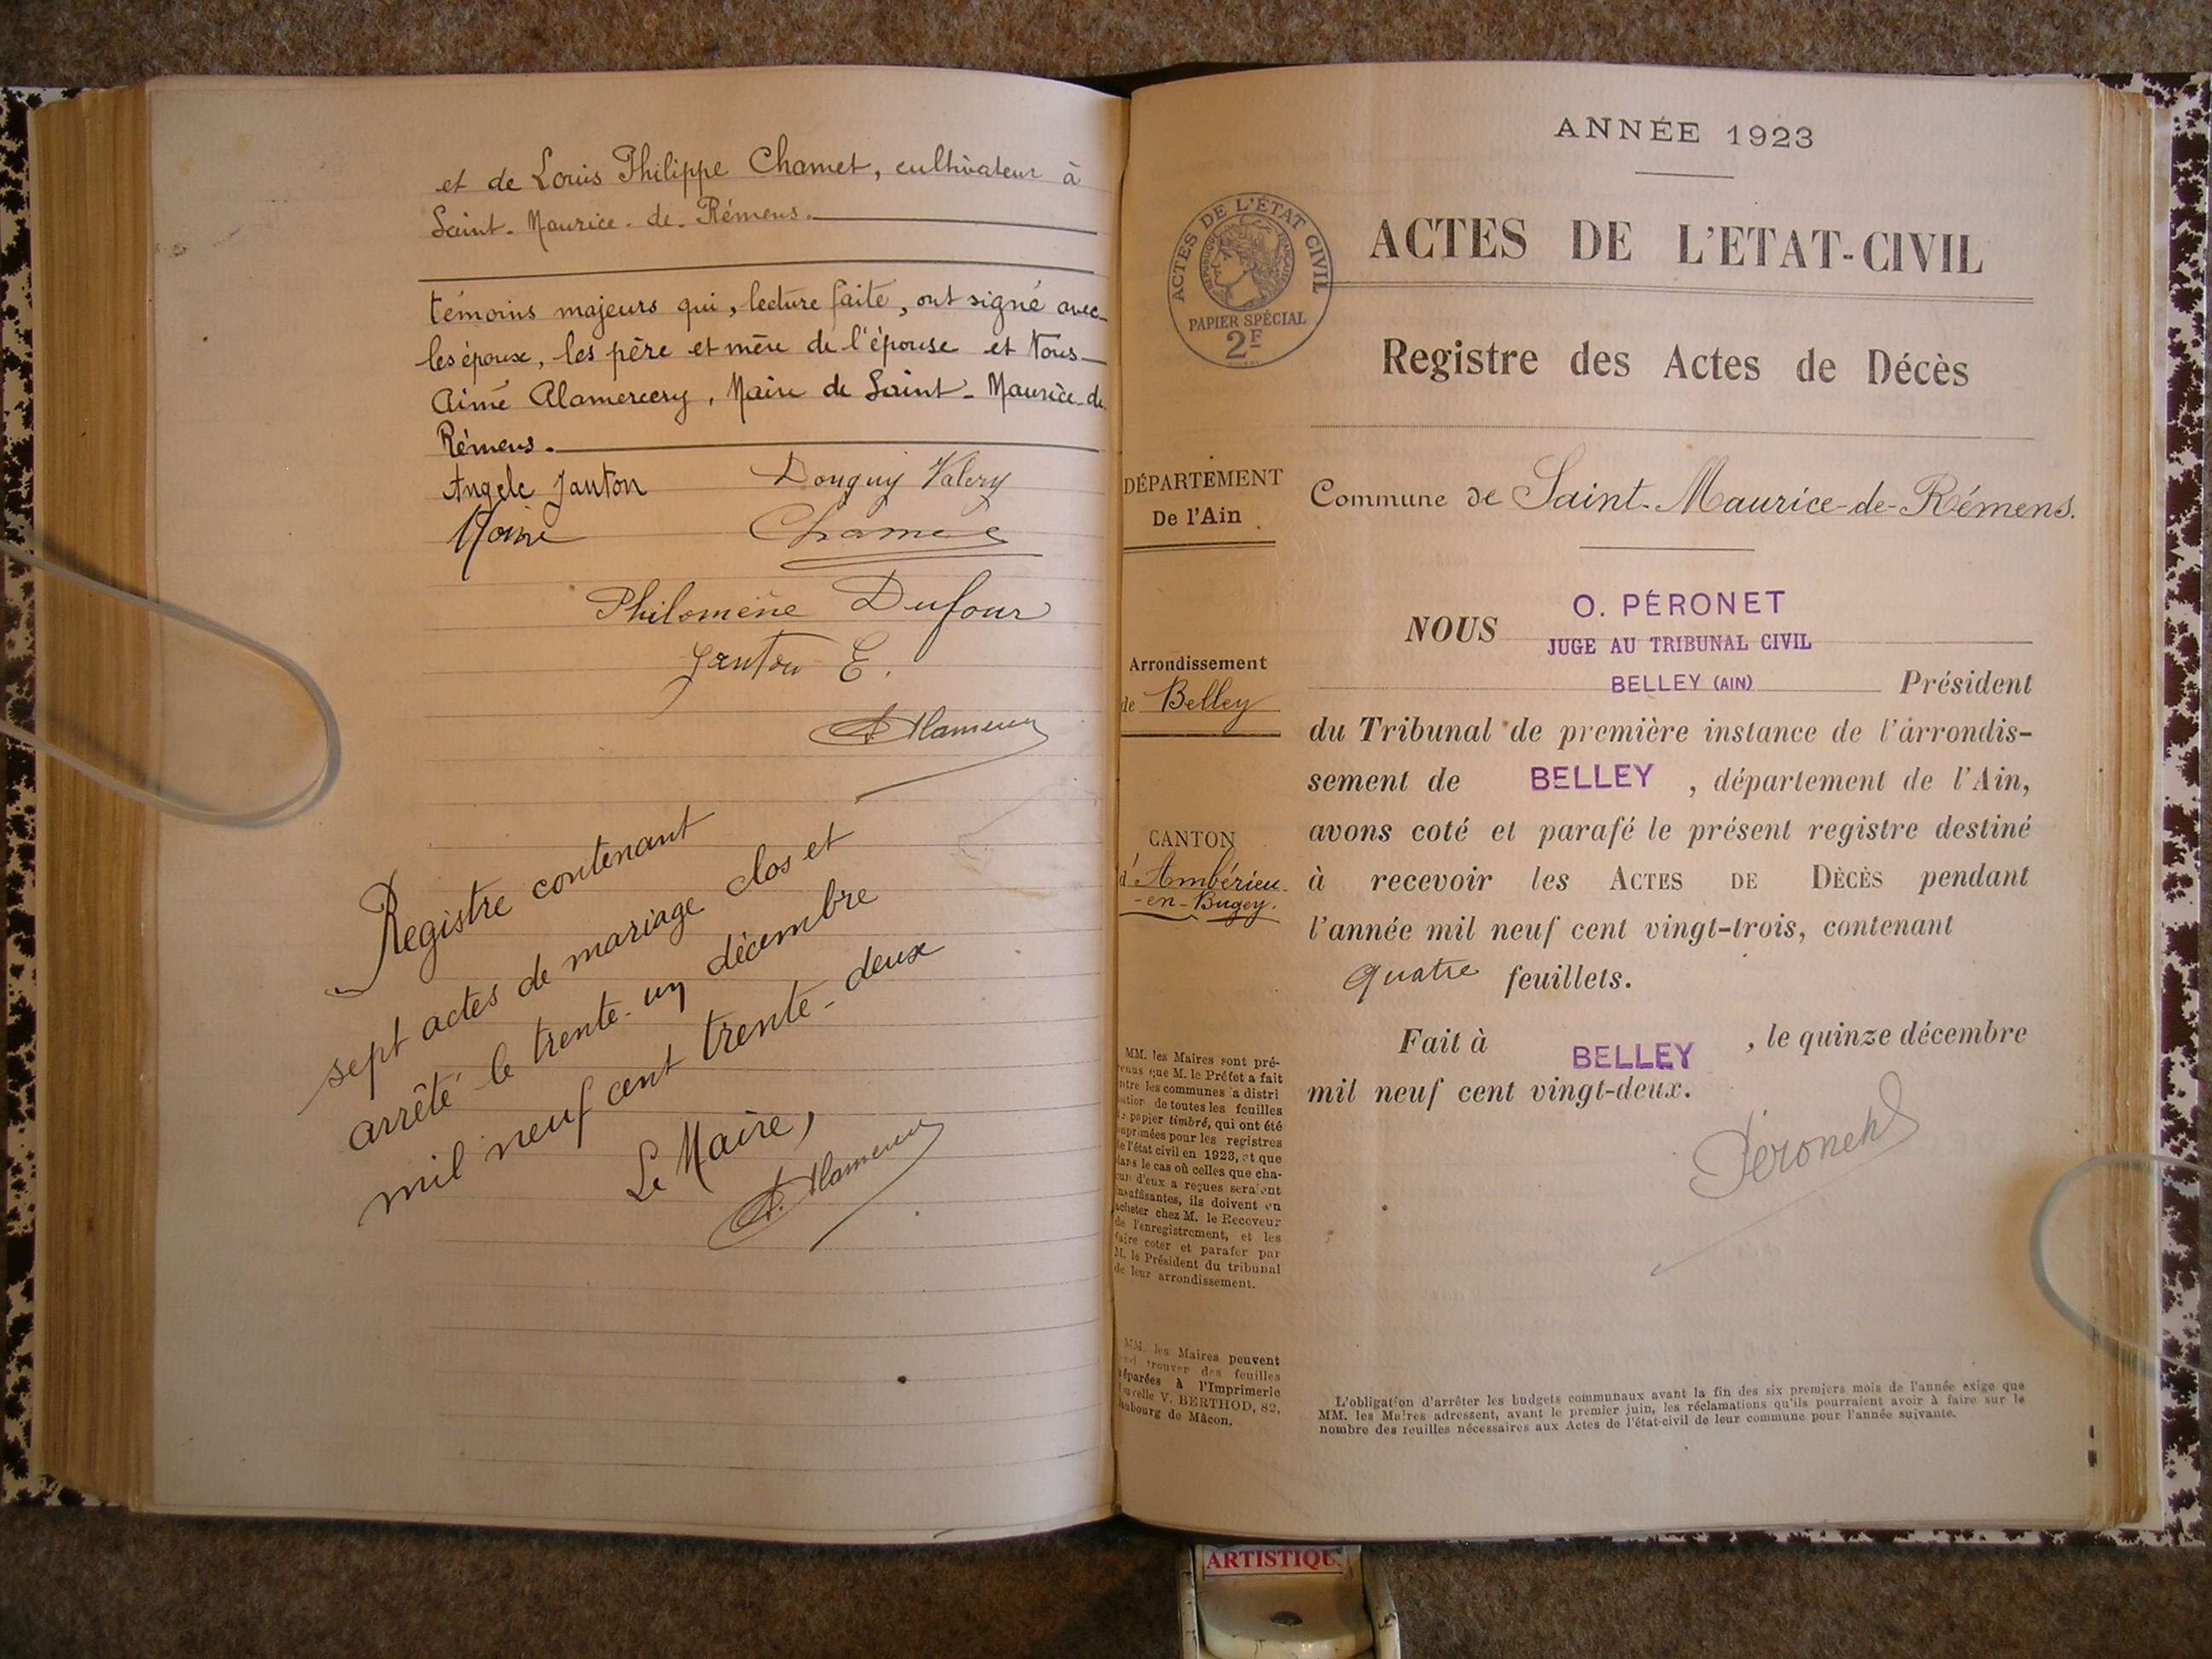 et de Louis Philippe Chamet, cultivateur à
Saint-Maurice-de-Rémens.
témoins majeurs qui, lecture faite, ont signé avec
les époux, les père et mère de l'épouse et Nous
Aimé Alamercery, Maire de Saint-Maurice-de
Rémens.
Angele Janton Douguy Valery
Moine Chamet
Philomène Dufour
Janton E.
Registre contenant
sept actes de mariage clos et
arrêté le trente-un décembre
mil neuf cent trente-deux
Le Maire,
ANNÉE 1923
ACTES DE L'ÉTAT CIVIL
RÉPUBLIQUE FRANÇAISE
PAPIER SPÉCIAL
2F
ACTES DE L'ETAT-CIVIL
Registre des Actes de Décès
DÉPARTEMENT
De l'Ain
Arrondissement
de Belley
CANTON
d'Ambérieu-
-en-Bugey.
MM. les Maires sont pré-
venus que M. le Préfet a fait
entre les communes la distri
bution de toutes les feuilles
de papier timbré, qui ont été
imprimées pour les registres
de l'état civil en 1923, et que
dans le cas où celles que cha-
cun d'eux a reçues seraient
insuffisantes, ils doivent en
acheter chez M. le Receveur
de l'enregistrement, et les
faire coter et parafer par
M. le Président du tribunal
de leur arrondissement.
MM. les Maires peuvent
trouver des feuilles
préparées à l'Imprimerie
Nouvelle V. BERTHOD, 82,
faubourg de Mâcon.
Commune de Saint-Maurice-de-Rémens.
NOUS O. PÉRONET
JUGE AU TRIBUNAL CIVIL
BELLEY (AIN) Président
du Tribunal de première instance de l'arrondis-
sement de BELLEY, département de l'Ain,
avons coté et parafé le présent registre destiné
à recevoir les ACTES DE DÉCÈS pendant
l'année mil neuf cent vingt-trois, contenant
quatre feuillets.
Fait à BELLEY, le quinze décembre
mil neuf cent vingt-deux.
Péronet
L'obligation d'arrêter les budgets communaux avant la fin des six premiers mois de l'année exige que
MM. les Maires adressent, avant le premier juin, les réclamations qu'ils pourraient avoir à faire sur le
nombre des feuilles nécessaires aux Actes de l'état-civil de leur commune pour l'année suivante.
ARTISTIQU